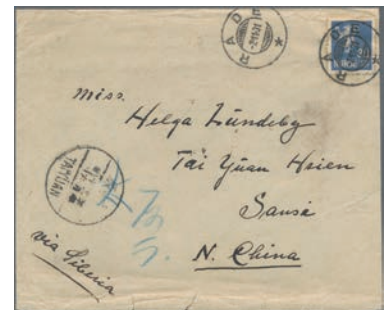 RADE
RADE
Miss.
Helga Lundeby
Tai Yuan Hsien
Sansi
N. China
TAIYUAN
via Siberia